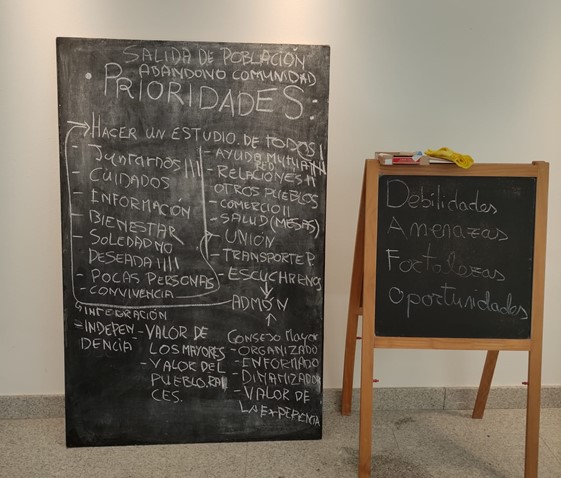 SALIDA DE POBLACIÓN
ABANDONO COMUNIDAD
• PRIORIDADES:
HACER UN ESTUDIO. DE TODOS
- JUNTARNOS IIII
- CUIDADOS
- INFORMACIÓN
- BIENESTAR
- SOLEDAD NO
DESEADA IIII
- POCAS PERSONAS
- CONVIVENCIA
- AYUDA MUTUA
RED
- RELACIONES
OTROS PUEBLOS
- COMERCIO II
- SALUD (MESAS)
- UNIÓN
- TRANSPORTE P.
- ESCUCHRENOS
ADMÓN
INTEGRACIÓN
= INDEPEN-
DENCIA
- VALOR DE
LOS MAYORES
- VALOR DEL
PUEBLO. RAI
CES.
CONSEJO MAYOR
- ORGANIZADO
- ENFORMADO
- DINAMIZADOR
- VALOR DE
LA EXPERIENCIA
Debilidades
Amenazas
Fortalezas
Oportunidades